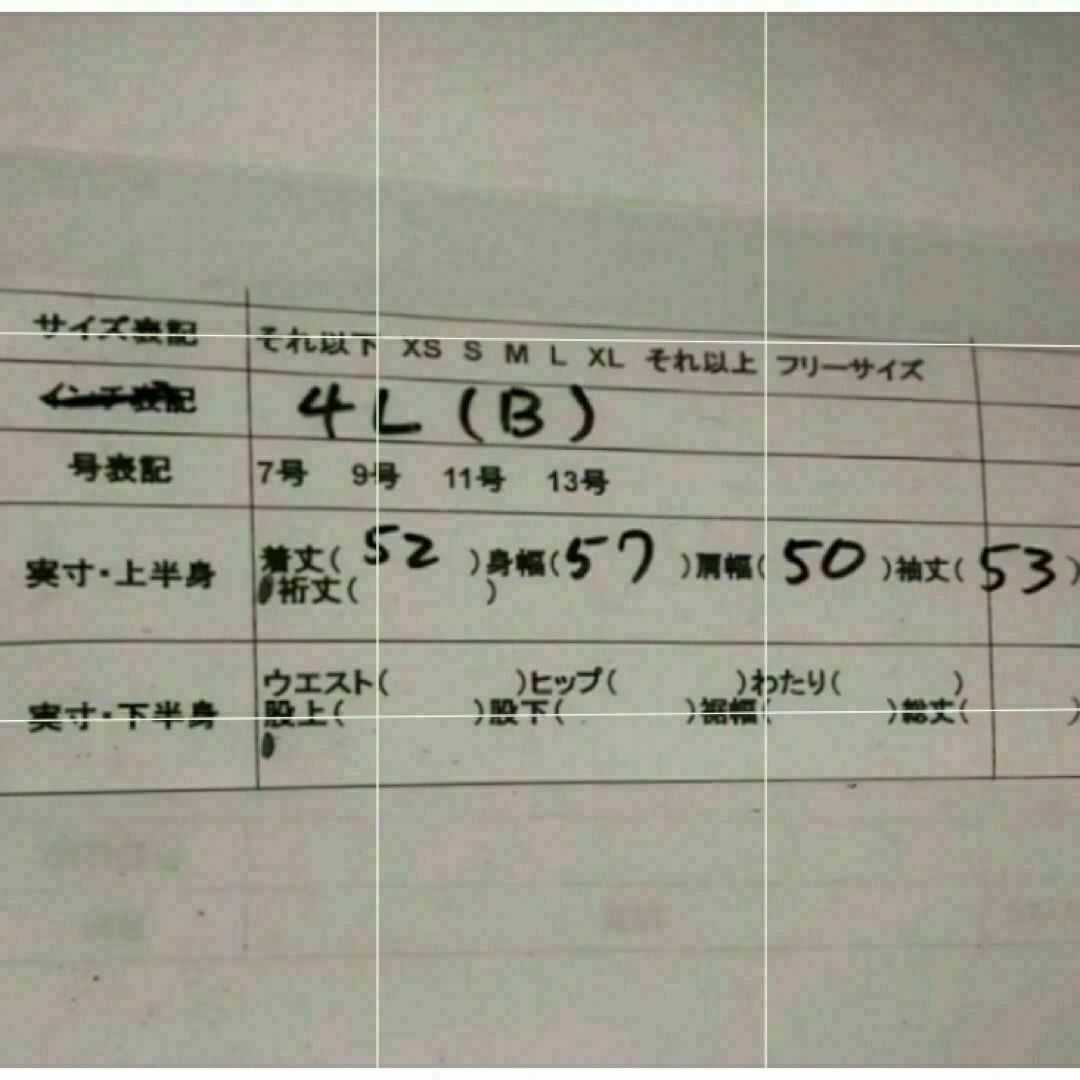 サイズ表記 それ以下 XS S M L XL それ以上 フリーサイズ
インチ表記 4L(B)
号表記 7号 9号 11号 13号
実寸・上半身 着丈( 52 )身幅( 57 )肩幅( 50 )袖丈( 53 )
裄丈( )
ウエスト( )ヒップ( )わたり( )
実寸・下半身 股上( )股下( )裾幅( )総丈( )